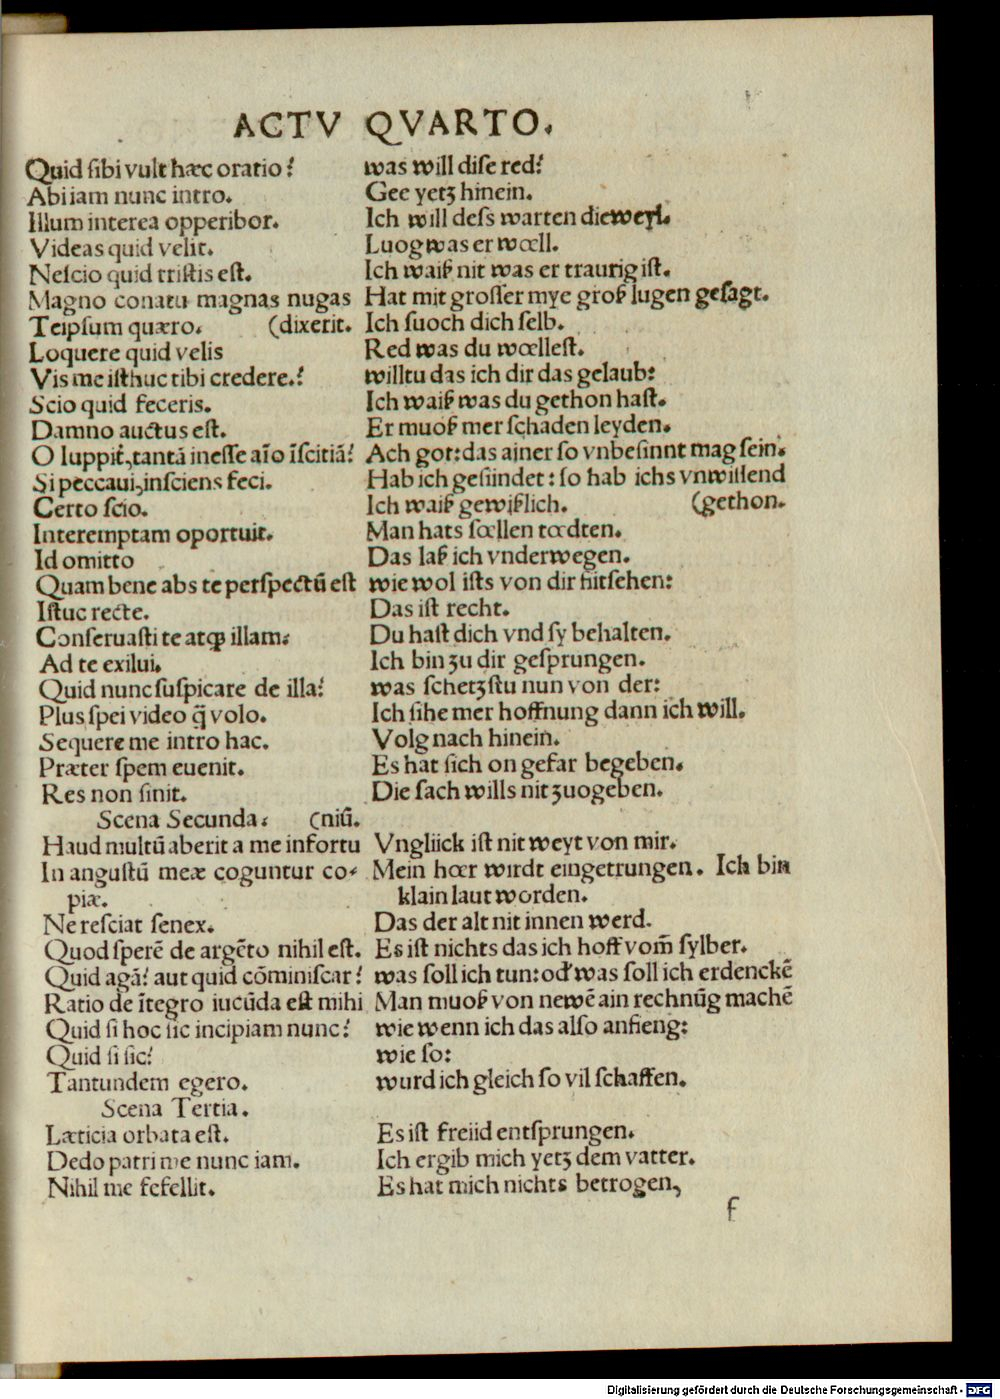 ACTV QVARTO.
Quid sibi vult hæc oratio? was will dise red?
Abi iam nunc intro. Gee yetz hinein.
Illum interea opperibor. Ich will dess warten dieweyl.
Videas quid velit. Luog was er wœll.
Nescio quid tristis est. Ich waiß nit was er traurig ist.
Magno conatu magnas nugas Hat mit grosser mye groß lugen gesagt.
Teipsum quæro. (dixerit. Ich suoch dich selb.
Loquere quid velis Red was du wœllest.
Vis me isthuc tibi credere.? willtu das ich dir das gelaub:
Scio quid feceris. Ich waiß was du gethon hast.
Damno auctus est. Er muoß mer schaden leyden.
O Iuppit̃, tantā inesse aīo īscitiā? Ach got: das ainer so vnbesinnt mag sein.
Si peccaui, insciens feci. Hab ich gesiindet: so hab ichs vnwissend
Certo scio. Ich waiß gewißlich. (gethon.
Interemptam oportuit. Man hats sœllen tœdten.
Id omitto Das laß ich vnderwegen.
Quam bene abs te perspectū est wie wol ists von dir fiitsehen:
Istuc recte. Das ist recht.
Conseruasti te atq̃ illam. Du hast dich vnd sy behalten.
Ad te exilui. Ich bin zu dir gesprungen.
Quid nunc suspicare de illa? was schetzstu nun von der:
Plus spei video q̃ volo. Ich sihe mer hoffnung dann ich will.
Sequere me intro hac. Volg nach hinein.
Præter spem euenit. Es hat sich on gefar begeben.
Res non sinit. Die sach wills nit zuogeben.
Scena Secunda. (niū.
Haud multū aberit a me infortu Vngliick ist nit weyt von mir.
In angustū meæ coguntur co- Mein hœr wirdt eingetrungen. Ich bin
piæ. klain laut worden.
Ne resciat senex. Das der alt nit innen werd.
Quod sperē de argēto nihil est. Es ist nichts das ich hoff vom̄ sylber.
Quid agā? aut quid cōminiscar? was soll ich tun: od' was soll ich erdenckē
Ratio de ītegro iucūda est mihi Man muoß von newē ain rechnūg machē
Quid si hoc sic incipiam nunc? wie wenn ich das also anfieng:
Quid si sic? wie so:
Tantundem egero. wurd ich gleich so vil schaffen.
Scena Tertia.
Læticia orbata est. Es ist freiid entsprungen.
Dedo patri me nunc iam. Ich ergib mich yetz dem vatter.
Nihil me fefellit. Es hat mich nichts betrogen,
f
Digitalisierung gefördert durch die Deutsche Forschungsgemeinschaft - DFG